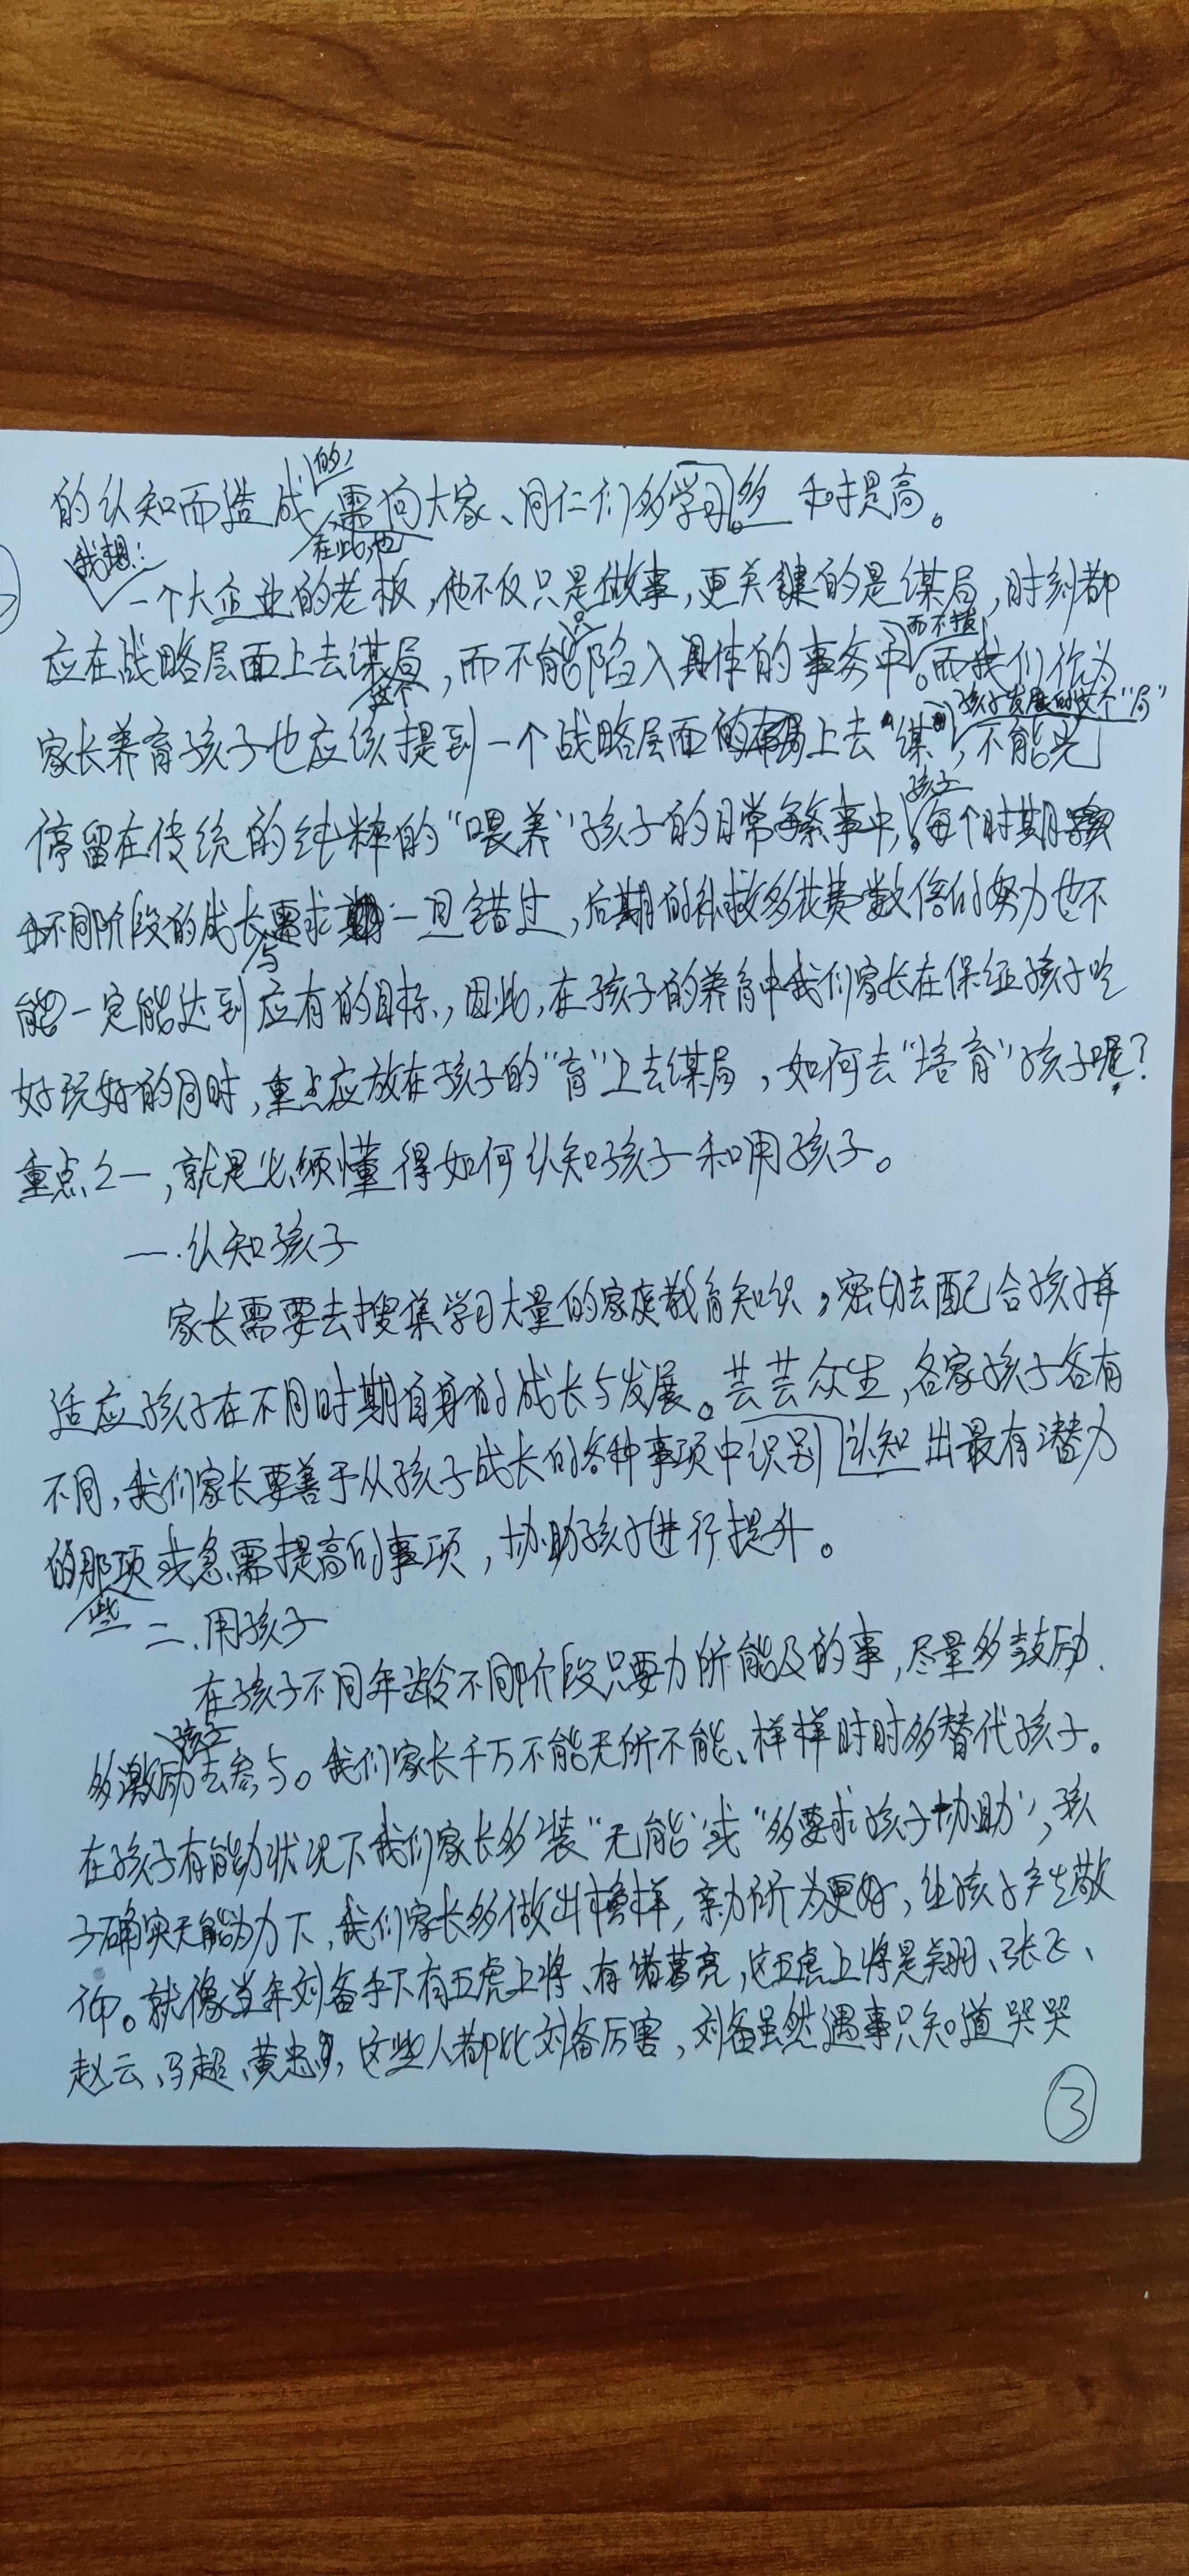 的认知而造成的,在此也需向大家、同仁们多学习。多和提高。
我想:一个大企业的老板,他不仅只是做事,更关键的是谋局,时刻都
应在战略层面上去谋局,而不能只陷入具体的事务中。而我们作为
家长养育孩子也应该提到一个战略层面的上去“谋”孩子发展的这个“局”,不能光
停留在传统的纯粹的“喂养”孩子的日常事中。孩子每个时期
不同阶段的成长与需求一旦错过,后期的补救多花费数倍的努力也不
能一定能达到应有的目标,因此,在孩子的养育中我们家长在保证孩子吃
好玩好的同时,重点应放在孩子的“育”上去谋局,如何去“培育”孩子呢?
重点之一,就是必须懂得如何认知孩子和用孩子。
一.认知孩子
家长需要去搜集学习大量的家庭教育知识,密切去配合孩子并
适应孩子在不同时期自身的成长与发展。芸芸众生,各家孩子各有
不同,我们家长要善于从孩子成长的各种事项中识别认知出最有潜力
的那些项或急需提高的事项,协助孩子进行提升。
二.用孩子
在孩子不同年龄不同阶段只要力所能及的事,尽量多鼓励、
多激励孩子去参与。我们家长千万不能无所不能、样样时时多替代孩子。
在孩子有能力状况下我们家长多装“无能”或“多要求孩子协助”,孩
子确实无能为力下,我们家长多做出榜样,亲力所为更好,让孩子产生敬
仰。就像当年刘备手下有五虎上将、有诸葛亮,这五虎上将是关羽、张飞、
赵云、马超、黄忠,这些人都比刘备厉害,刘备虽然遇事只知道哭哭
③